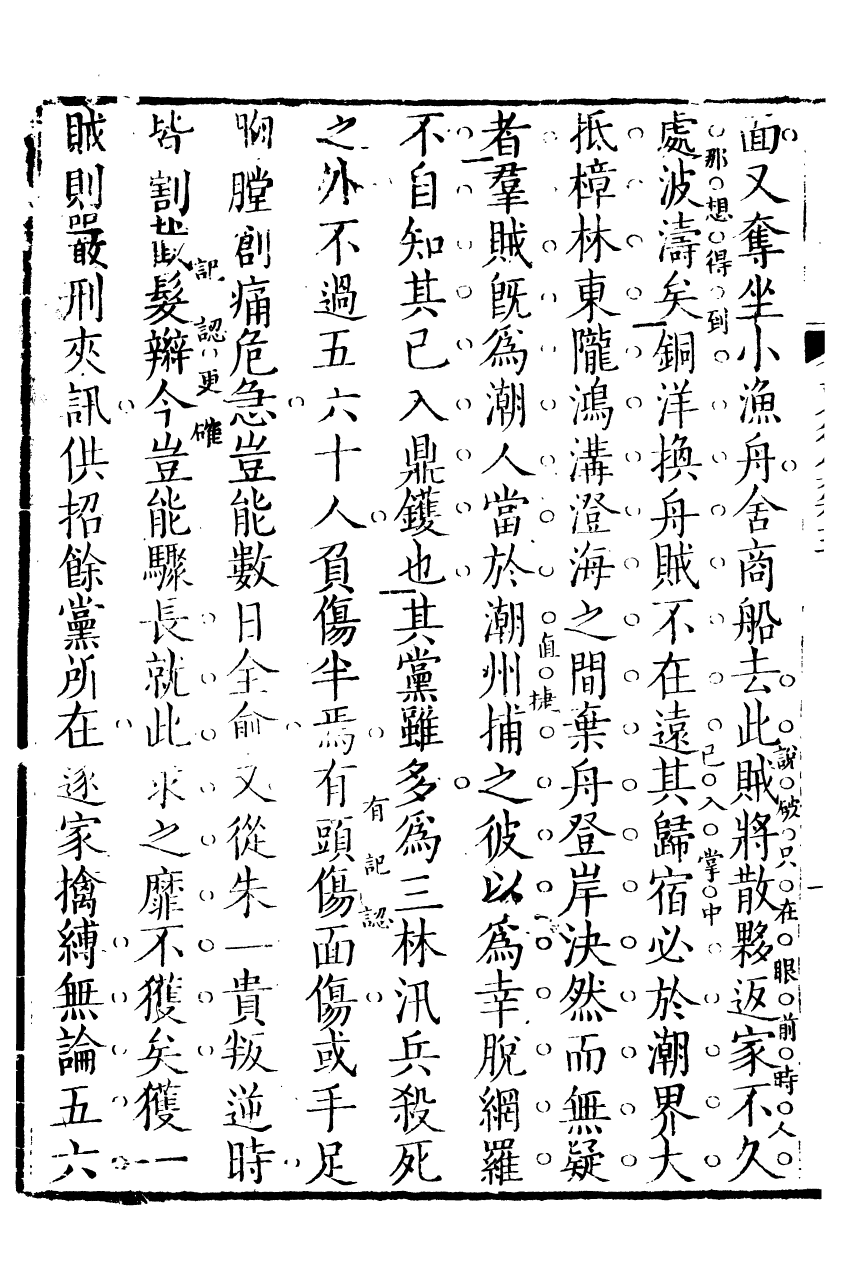 面又奪坐小漁舟舍商船去此賊將散夥返家不久
說破只在眼前時人
那想得到
處波濤矣銅洋換舟賊不在遠其歸宿必於潮界大
已入掌中
抵樟林東隴鴻溝澄海之間棄舟登岸決然而無疑
直捷
者羣賊旣為潮人當於潮州捕之彼以為幸脫網羅
不自知其已入鼎鑊也其黨雖多為三林汛兵殺死
有記認
之外不過五六十人負傷半焉有頭傷面傷或手足
胸膛創痛危急豈能數日全俞又從朱一貴叛逆時
記認更確
皆割截髮辮今豈能驟長就此求之靡不獲矣獲一
賊則嚴刑夾訊供招餘黨所在逐家擒縛無論五六